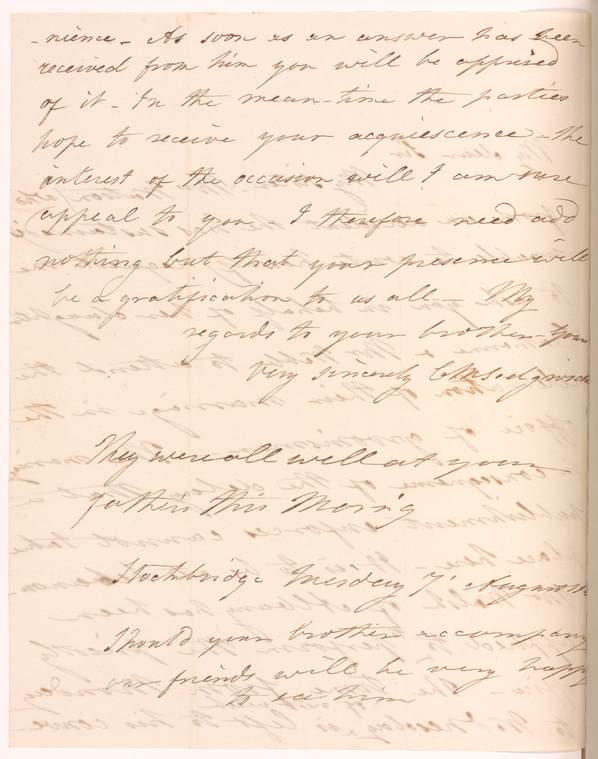 -nience - As soon as an answer has been
received from him you will be apprised
of it - In the mean-time the parties
hope to receive your acquiescence - the
interest of the occasion will I am sure
appeal to you I therefore need add
nothing but that your presence will
be a gratification to us all - My
regards to your brother - your
very sincerely C M Sedgwick
They were all well at your
father's this Morng
Stockbridge Tuesday 7' August
Should your brother accompany
our friends will be very happy
to see him